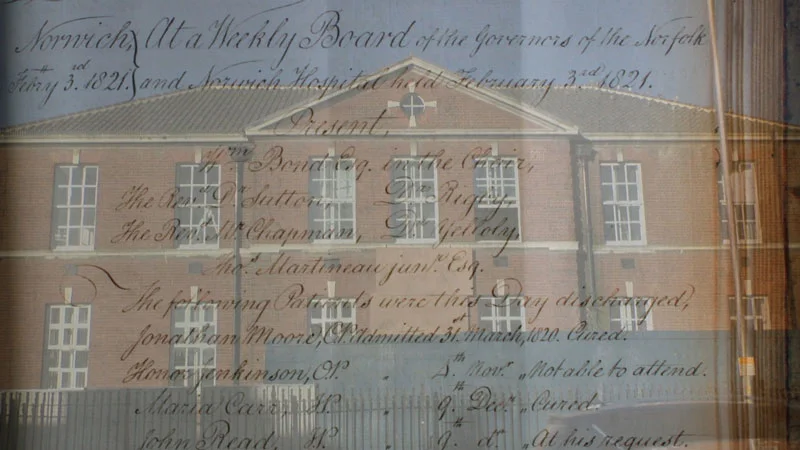 Norwich, } At a Weekly Board of the Governors of the Norfolk
Febry 3rd. 1821. } and Norwich Hospital held February 3rd. 1821.
Present,
Wm Bond Esq. in the Chair,
The Revd. Dr. Sutton, Dr. Rigby,
The Revd. Mr. Chapman, Dr. Yelloly,
Thos. Martineau junr. Esq.
The following Patients were this Day discharged,
Jonathan Moore, O.P. admitted 31st. March, 1820. Cured.
Honor Jenkinson, O.P. " 4th. Novr. " Not able to attend.
Maria Carr, W. " 9th. Decr. " Cured.
John Read, W. " 9th. do. " At his request.